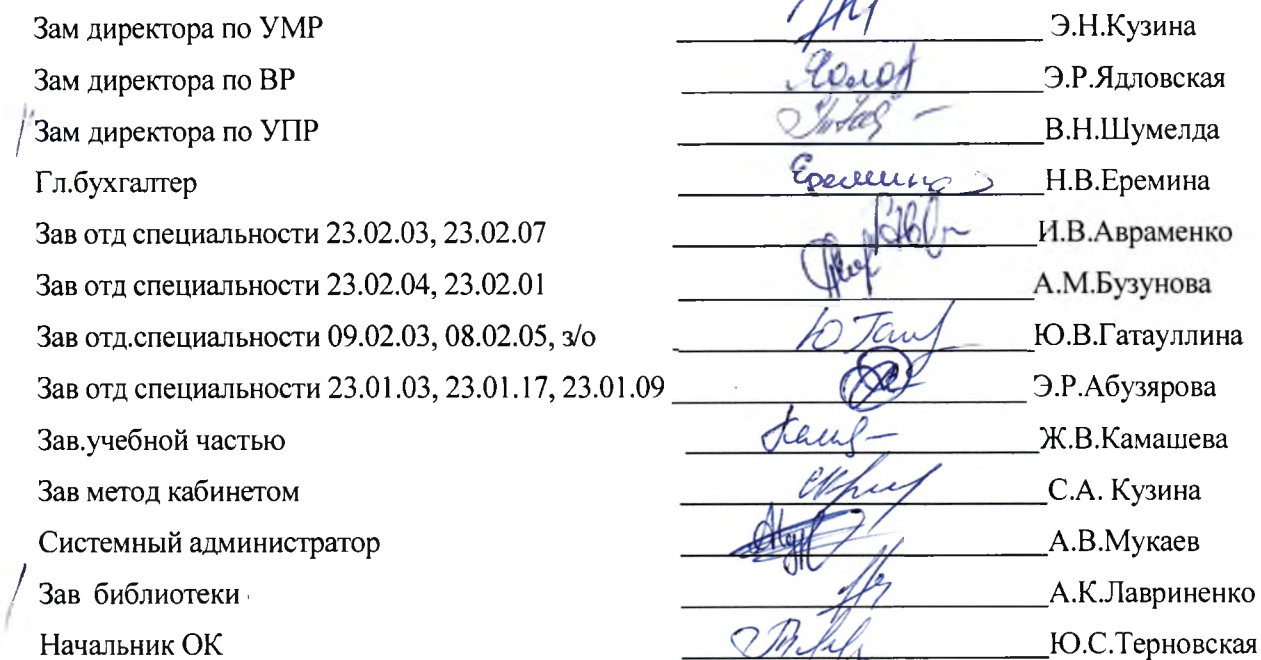 Зам директора по УМР Э.Н.Кузина
Зам директора по ВР Э.Р.Ядловская
Зам директора по УПР В.Н.Шумелда
Гл.бухгалтер Еремина Н.В.Еремина
Зав отд специальности 23.02.03, 23.02.07 И.В.Авраменко
Зав отд специальности 23.02.04, 23.02.01 А.М.Бузунова
Зав отд.специальности 09.02.03, 08.02.05, з/о Ю.В.Гатауллина
Зав отд специальности 23.01.03, 23.01.17, 23.01.09 Э.Р.Абузярова
Зав.учебной частью Ж.В.Камашева
Зав метод кабинетом С.А. Кузина
Системный администратор А.В.Мукаев
Зав библиотеки А.К.Лавриненко
Начальник ОК Ю.С.Терновская